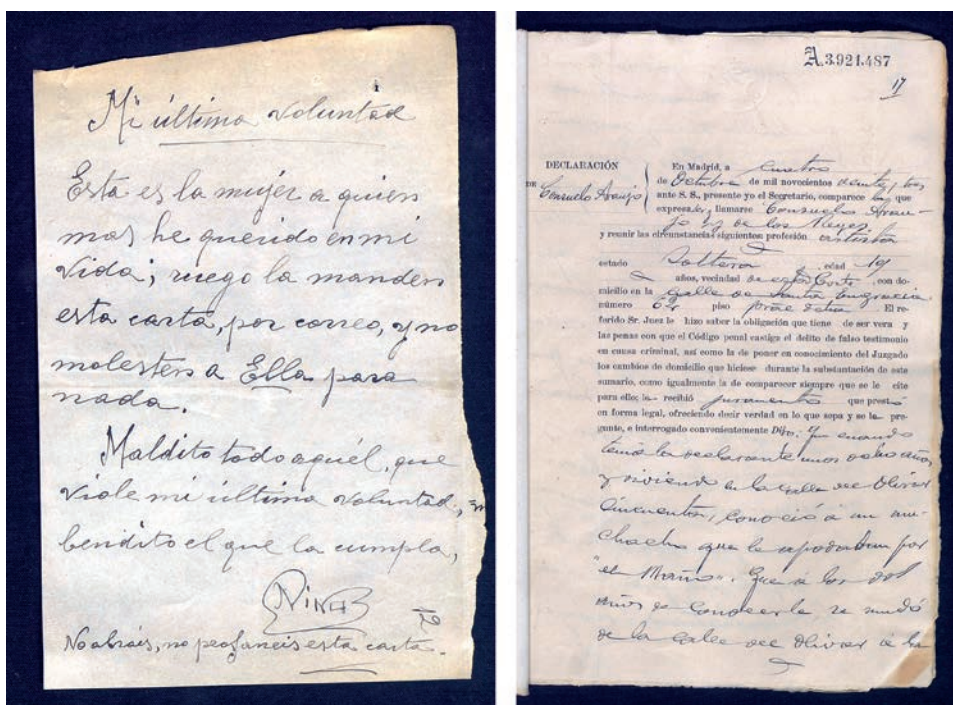 Mi última voluntad
Esta es la mujer a quien
mas he querido en mi
vida; ruego la manden
esta carta, por correo, y no
molesten a Ella para
nada.
Maldito todo aquél, que
viole mi última voluntad, y
bendito el que la cumpla,
No abráis, no profaneis esta carta.
A.3.921.487
17
DECLARACIÓN
DE
Consuelo Araujo
En Madrid, a cuatro
de Octubre de mil novecientos veinte y tres
ante S. S., presente yo el Secretario, comparece que
expresa llamarse Consuelo Arau-
jo de los Reyes
y reunir las circunstancias siguientes: profesión artista
estado Soltera, edad 19
años, vecindad de esta Corte, con do-
micilio en la Calle de Santa Engracia
número 62 piso El re-
ferido Sr. Juez le hizo saber la obligación que tiene de ser vera y
las penas con que el Código penal castiga el delito de falso testimonio
en causa criminal, así como la de poner en conocimiento del Juzgado
los cambios de domicilio que hiciese durante la substantación de este
sumario, como igualmente la de comparecer siempre que se le cite
para ello; le recibió juramento que prestó
en forma legal, ofreciendo decir verdad en lo que sepa y se le pre-
gunte, e interrogado convenientemente Dijo: Que cuando
tenía la declarante unos ocho años
y viviendo en la calle del Olivar
cincuenta, conoció á un mu-
chacho que le apodaban por
"el Maño". Que á los dos
años de conocerle se mudó
de la calle del Olivar á la